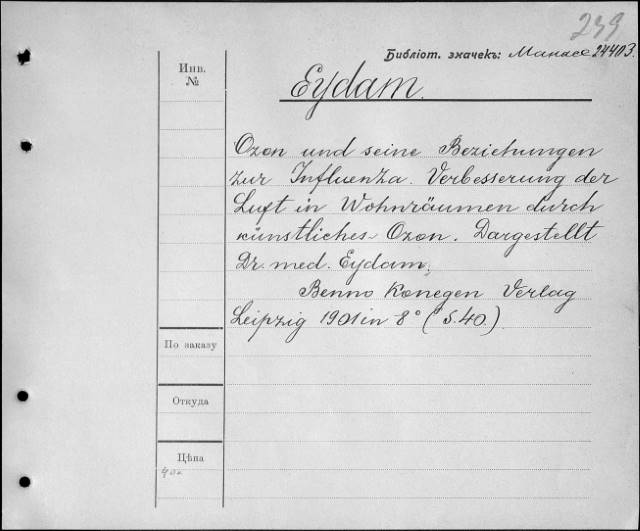 239
Библіот. значекъ: Манасе 24403.
Инв. №
Eydam.
Ozon und seine Beziehungen
zur Influenza. Verbesserung der
Luft in Wohnräumen durch
künstliches Ozon. Dargestellt
Dr. med. Eydam;
Benno Konegen Verlag
Leipzig 1901 in 8° (S. 40.)
По заказу
Откуда
Цѣна